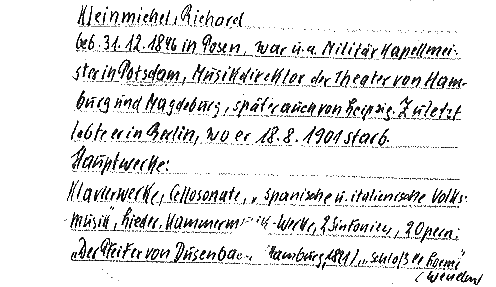 Kleinmichel, Richard
Geb. 31.12.1846 in Posen, war u.a. Militärkapellmei-
ster in Potsdam, Musikdirektor der Theater von Ham-
burg und Magdeburg, später auch von Leipzig. Zuletzt
lebte er in Berlin, wo er 18.8.1901 starb.
Hauptwerke:
Klavierwerke, Cellosonate, „spanische u. italienische Volks-
musik", Lieder, Kammermusik-Werke, 2 Sinfonien, 2 Opern:
„Der Pfeifer von Dusenbach Hamburg, 1881), „Schloß de
(wenden